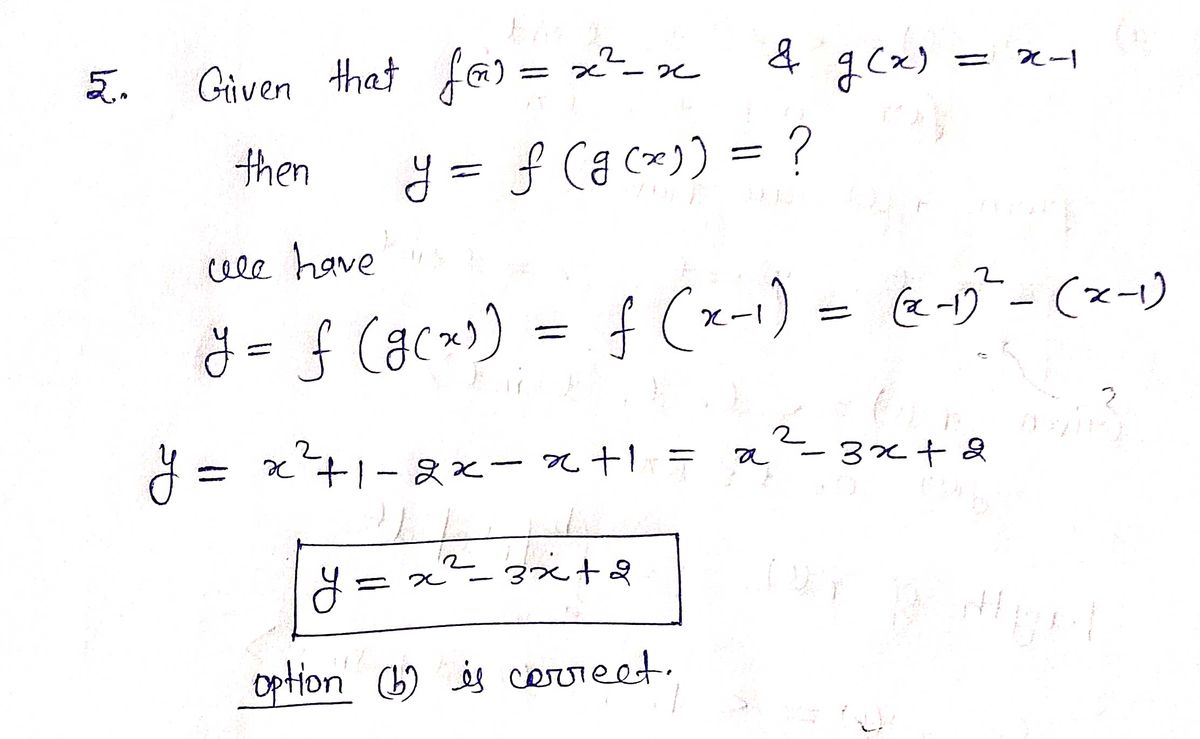 5. Given that f(x) = x²- x & g(x) = x-1
then y = f (g(x)) = ?
we have
y = f (g(x)) = f (x-1) = (x-1)² - (x-1)
y = x²+1-2x- x+1 = x²-3x+2
y = x²-3x+2
option (b) is correct.